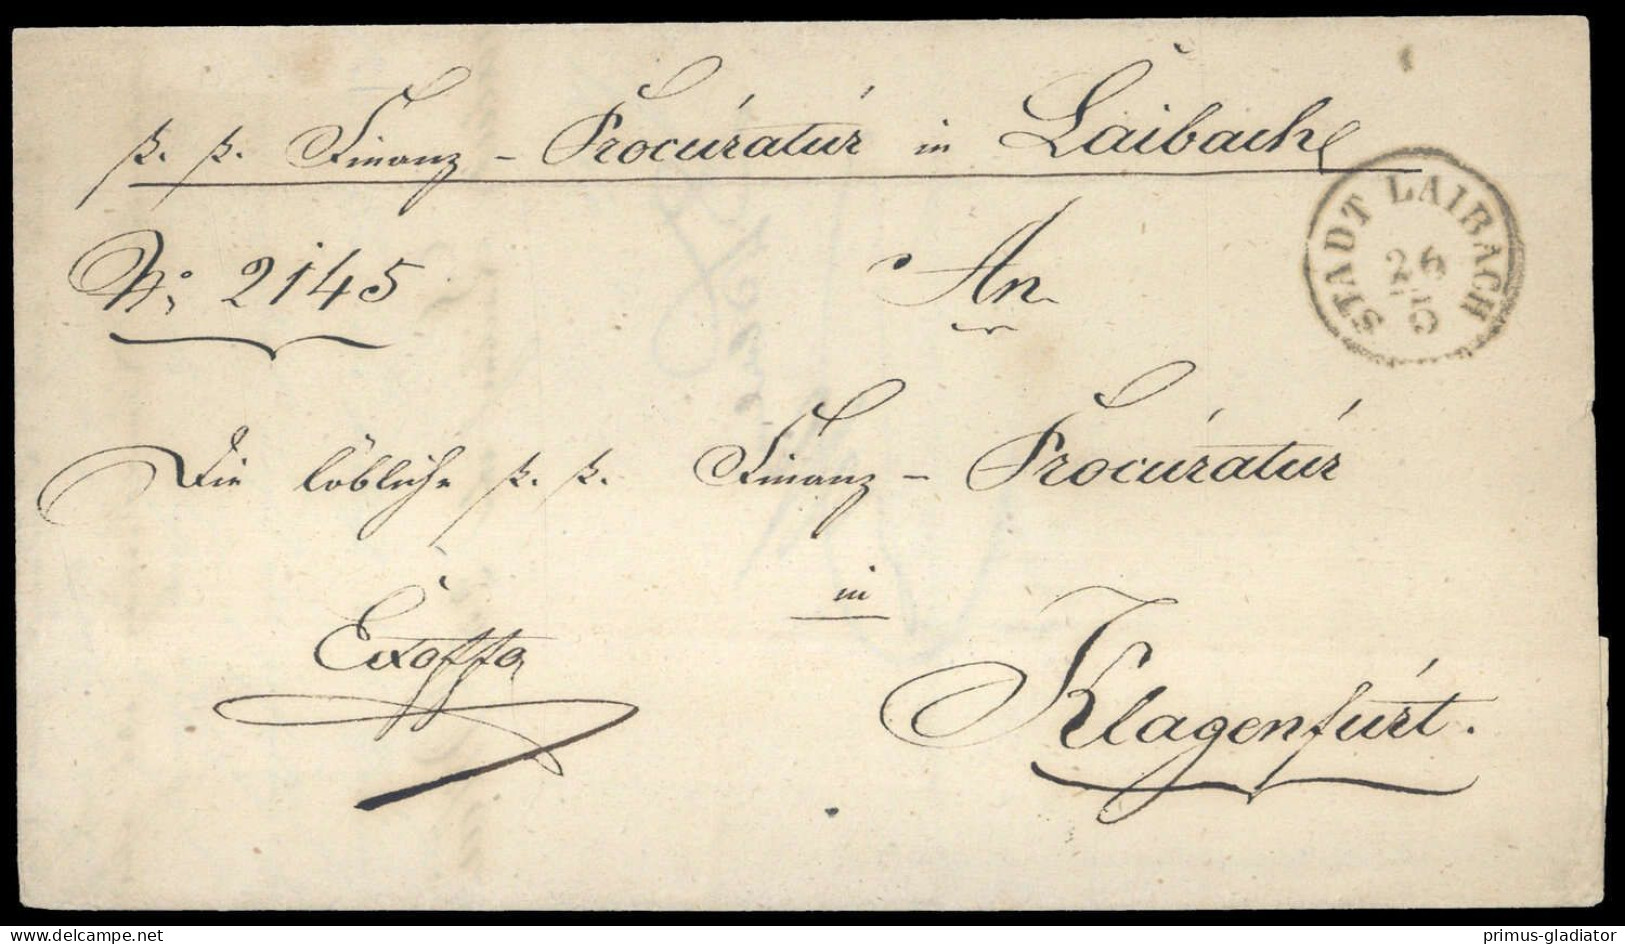 k. k. Finanz-Procúratúr in Laibach
STADT LAIBACH
26
No; 2145
An
Die löbliche k. k. Finanz-Procúratúr
in
Exoffo
Klagenfúrt.
www.delcampe.net
primus-gladiator